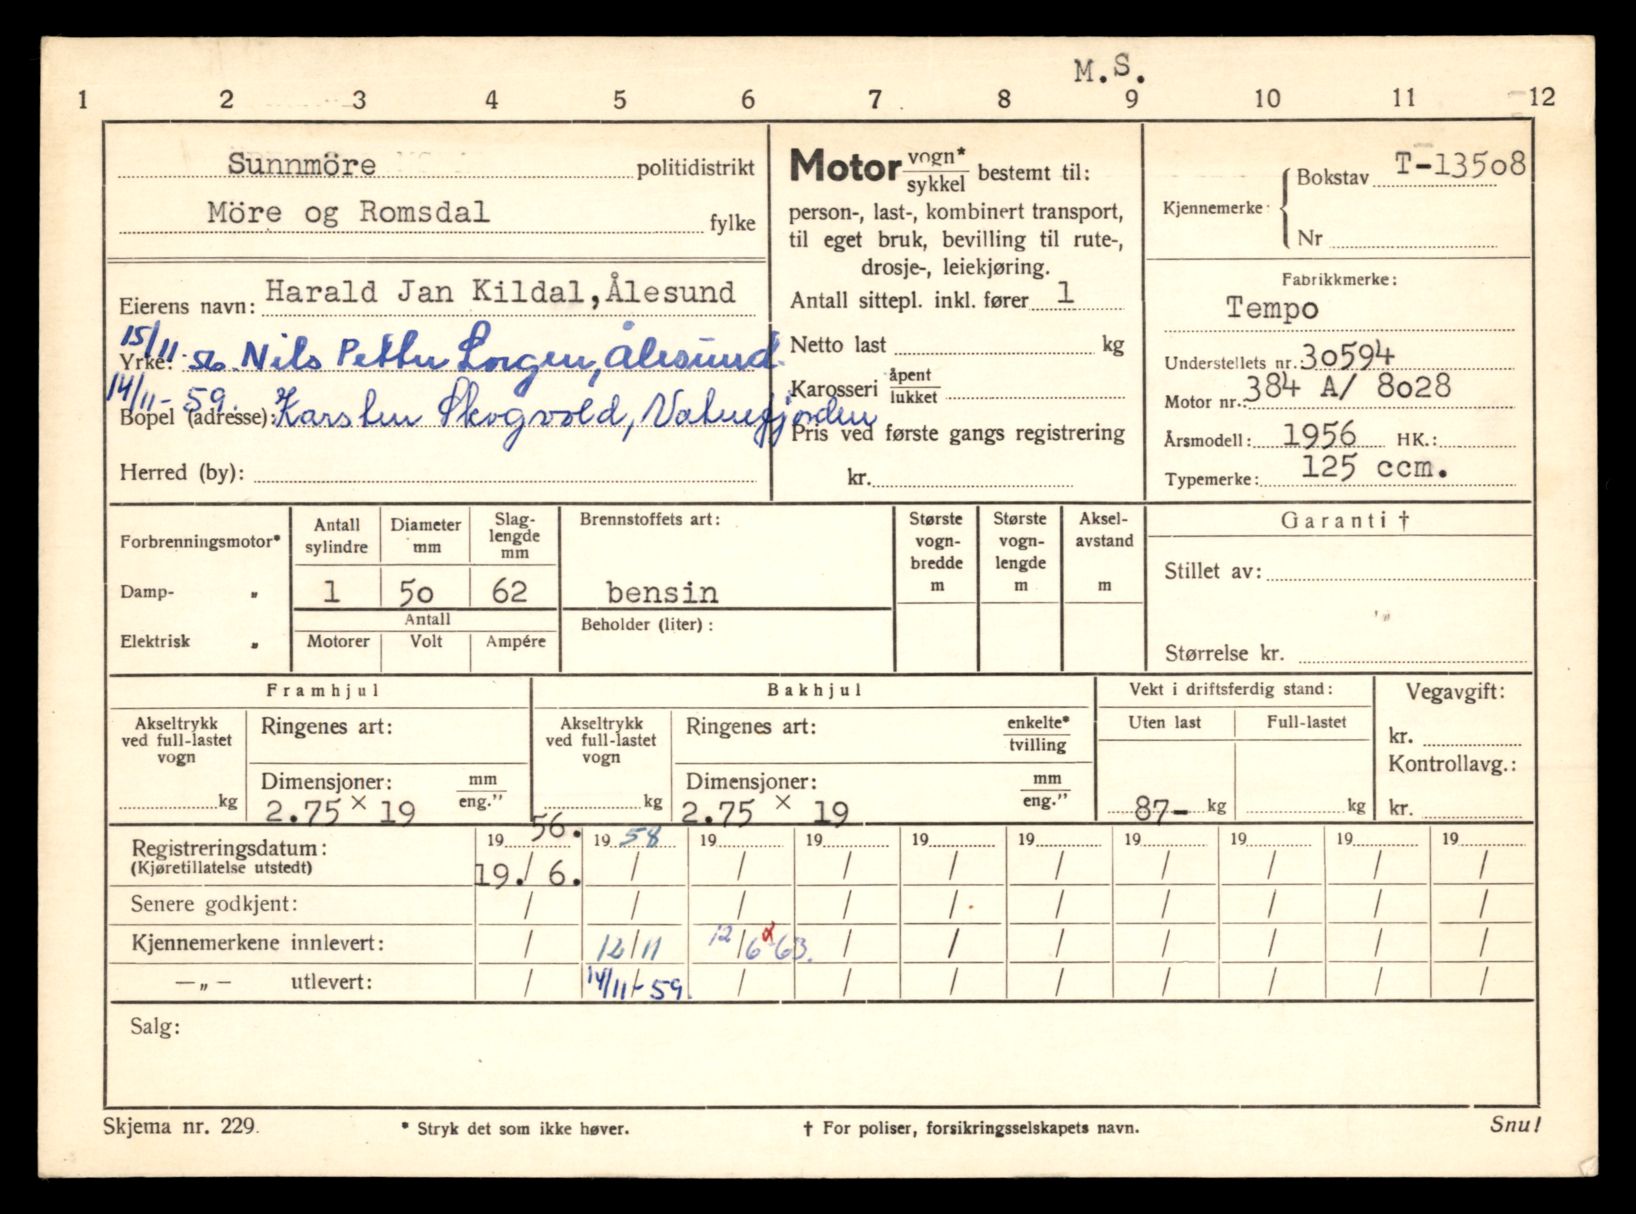 M.S.
1 2 3 4 5 6 7 8 9 10 11 12
Sunnmöre politidistrikt
Möre og Romsdal fylke
Eierens navn: Harald Jan Kildal, Ålesund
15/11 - 56. Nils Petter Longen, Ålesund.
Yrke:
14/11 - 59. Karsten Skogvold, Vatnefjorden
Bopel (adresse):
Herred (by):
Motor vogn* sykkel bestemt til:
person-, last-, kombinert transport,
til eget bruk, bevilling til rute-,
drosje-, leiekjøring.
Antall sittepl. inkl. fører 1
Netto last kg
Karosseri åpent lukket
Pris ved første gangs registrering
kr.
Kjennemerke: Bokstav T-13508
Nr
Fabrikkmerke:
Tempo
Understellets nr.: 30594
Motor nr.: 384 A/ 8028
Årsmodell: 1956 HK.:
Typemerke: 125 ccm.
Forbrenningsmotor*
Damp- „
Elektrisk „
Antall sylindre Diameter mm Slag-lengde mm
1 50 62
Antall
Motorer Volt Ampére
Brennstoffets art:
bensin
Beholder (liter):
Største vogn-bredde m
Største vogn-lengde m
Aksel-avstand m
Garanti †
Stillet av:
Størrelse kr.
Framhjul
Akseltrykk ved full-lastet vogn
kg
Ringenes art:
Dimensjoner: mm eng."
2.75 x 19
Bakhjul
Akseltrykk ved full-lastet vogn
kg
Ringenes art: enkelte* tvilling
Dimensjoner: mm eng."
2.75 x 19
Vekt i driftsferdig stand:
Uten last Full-lastet
87- kg kg
Vegavgift:
kr.
Kontrollavg.:
kr.
Registreringsdatum: 19 56. 19 58 19 19 19 19 19 19 19 19
(Kjøretillatelse utstedt) 19./ 6. / / / / / / / / /
Senere godkjent: / / / / / / / / / /
Kjennemerkene innlevert: / 12/11 12/6-63. / / / / / / /
—„— utlevert: / 14/11-59. / / / / / / / /
Salg:
Skjema nr. 229. * Stryk det som ikke høver. † For poliser, forsikringsselskapets navn. Snu!